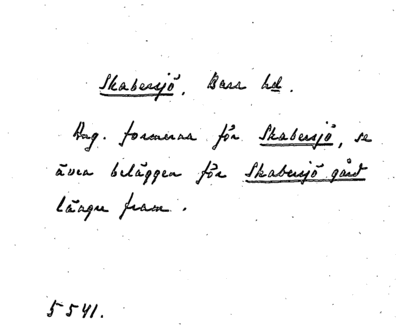 Skabersjö, Bara hd.
Ang. formerna för Skabersjö, se
även beläggen för Skabersjö gård
längre fram.
5541.